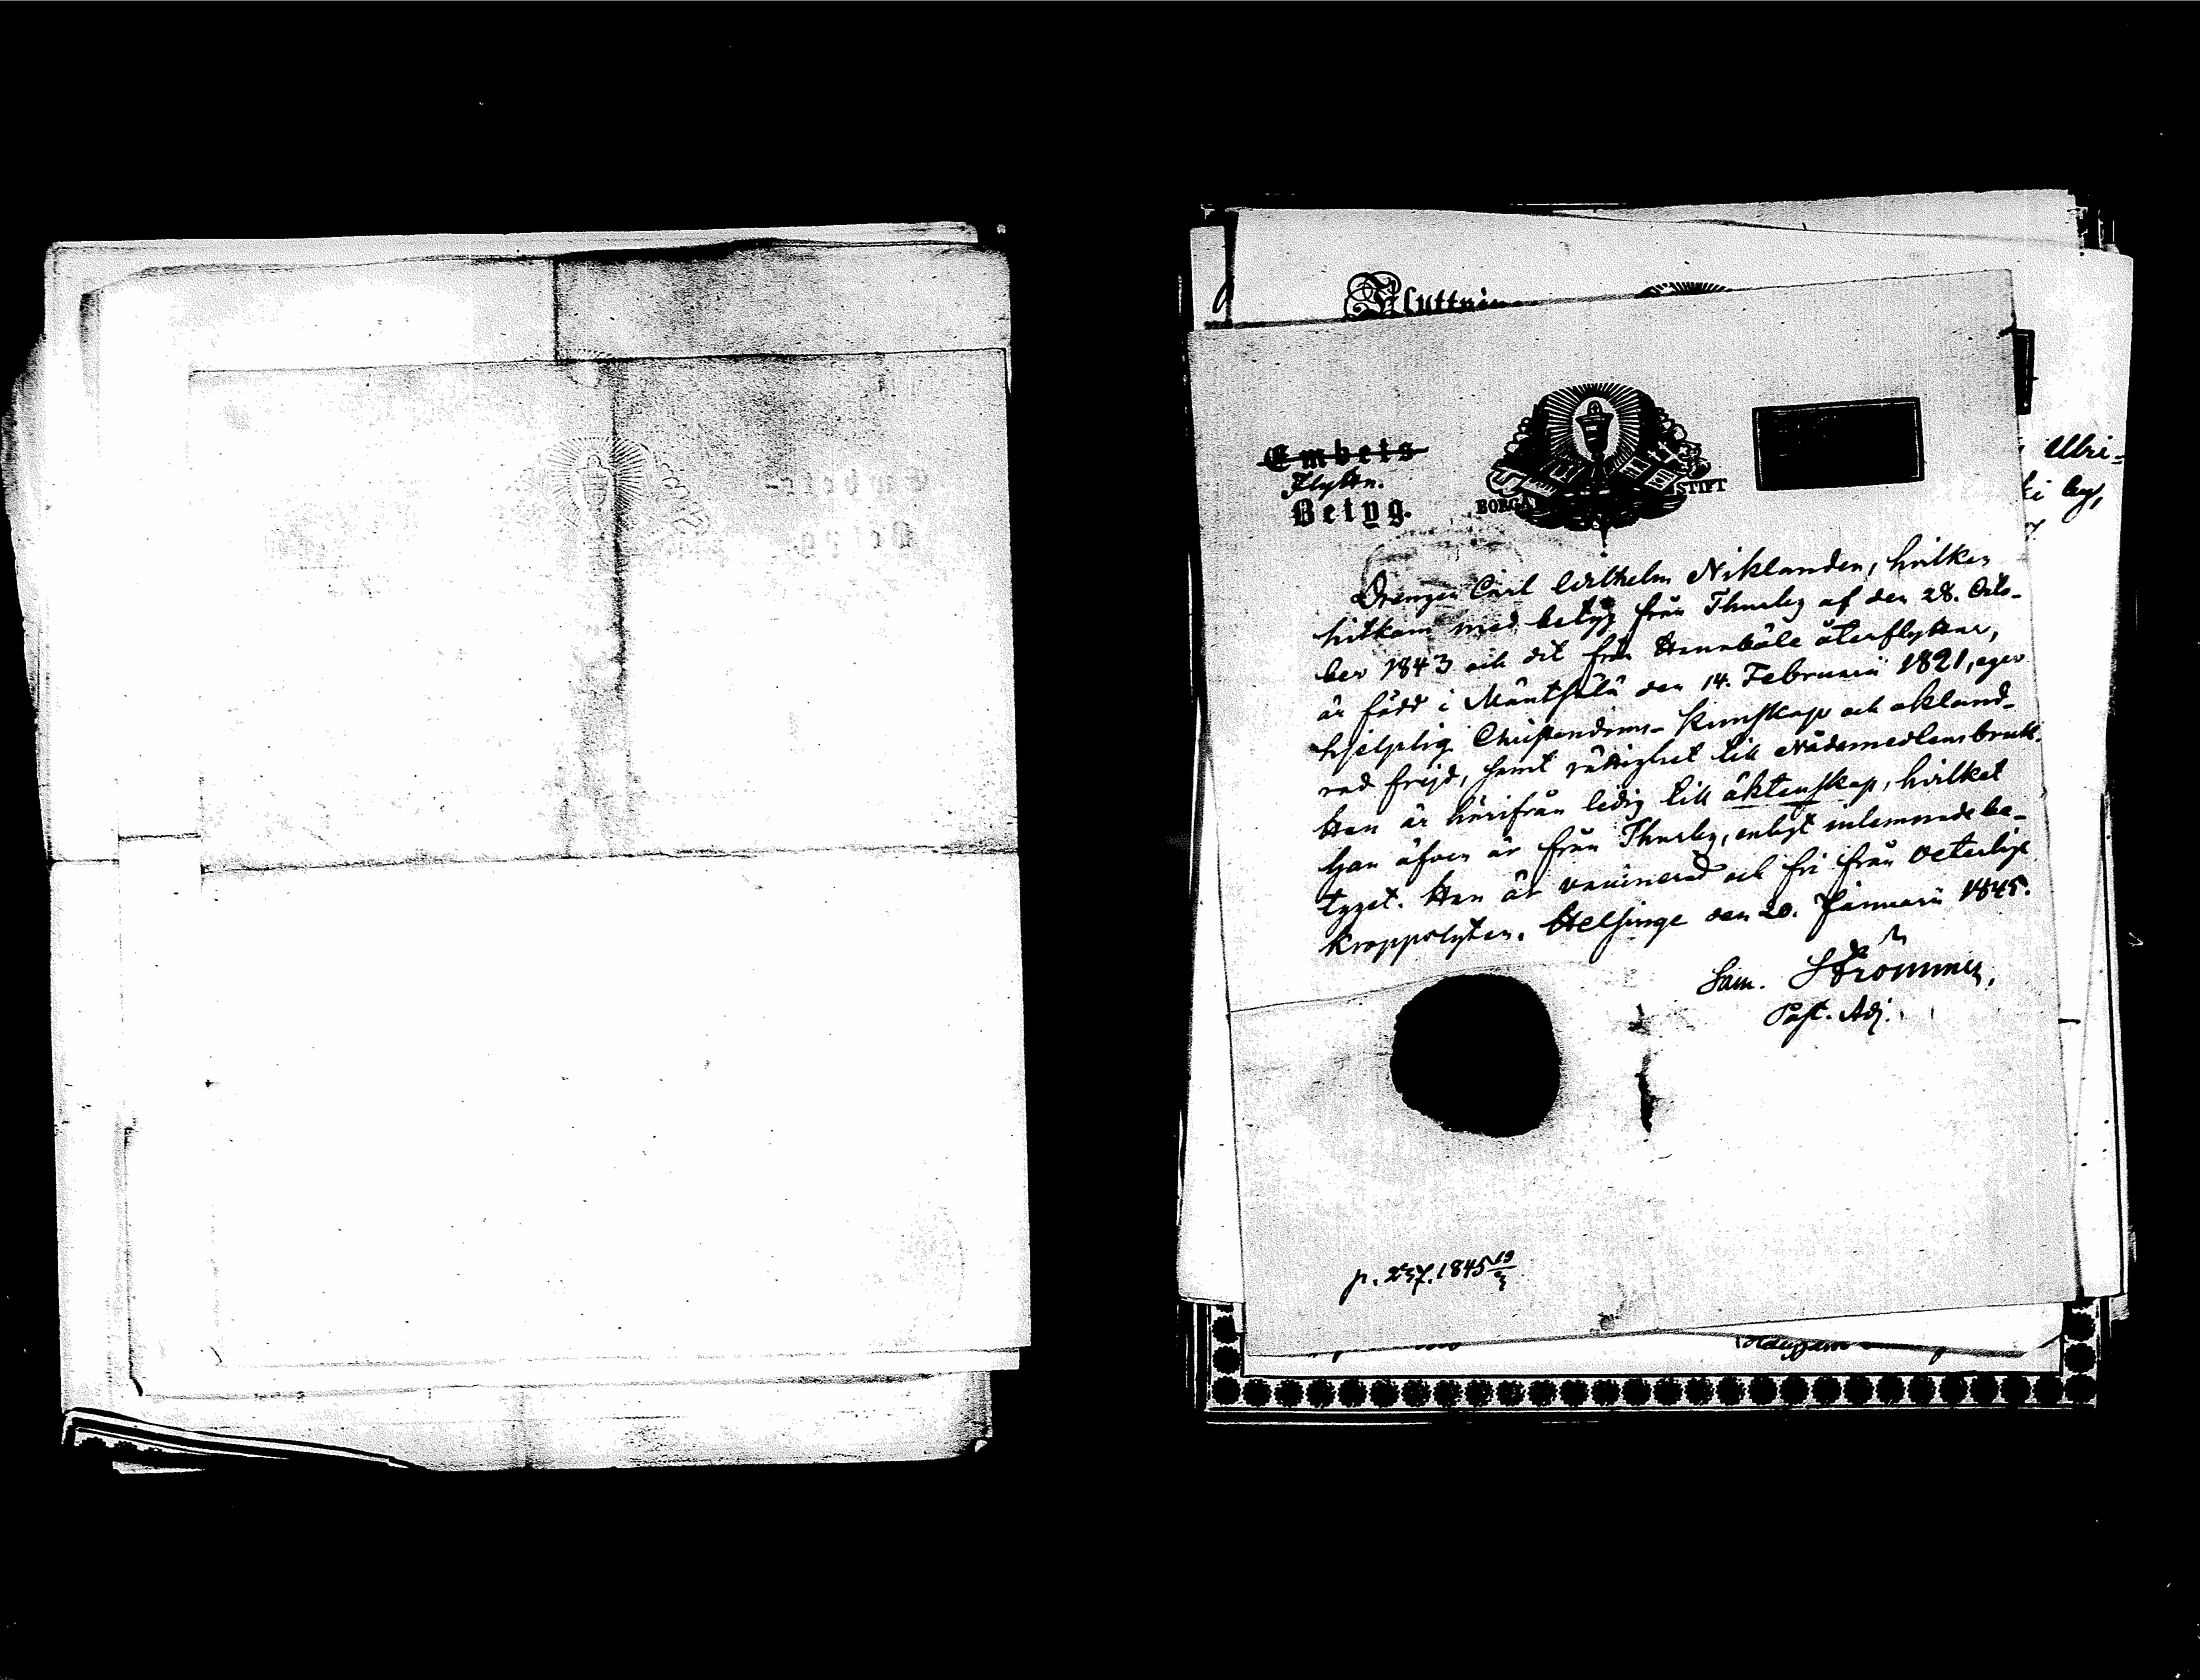 Flyttnin
Embets
Flyttn.
Betyg.
BORGÅ STIFT
Ulri-
Drengen Carl Wilhelm Niklander, hvilken
hitkom med betyg från Thusby af den 28. Octo-
ber 1843 och dit från Hannböle återflyttar,
är född i Mäntsälä den 14. Februarii 1821, eger
hjelplig Christendoms-kunskap och okland-
rad frejd, samt rättighet till Nådemedlens bruk.
Han är härifrån ledig till äktenskap, hvilket
han äfven är från Thusby, enligt inlemnade be-
tyget. Han är vaccinerad och fri från veterligt
kroppslyten. Helsinge den 20. Januarii 1845.
Sam. Strömmer,
Past. Adj.
p. 237. 1845 19/3